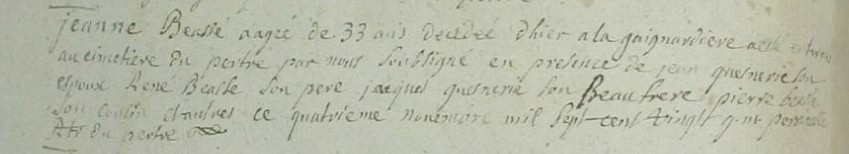 jeanne Beassé aagéé de 33 ans decedéé d'hier a la gaignardiere a esté enterré
au cimetière du pertre par nous soubsigné en presence de jean quesnerie son
espoux René Beasse son pere jacques quesnerie son Beaufrere pierre beasse
son cousin et autres ce quatrieme novembre mil sept cent vingt
du pertre